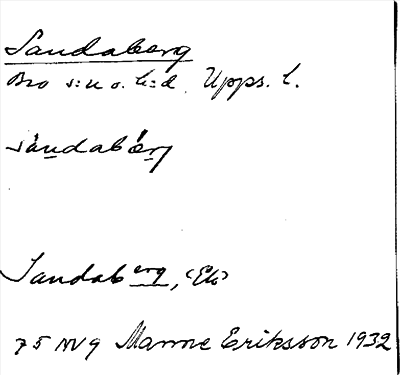 Sandaberg
Bro s:n o. h:d. Upps. l.
sándabærj
Sandaberg, (Ek)
75 NV 9 Manne Eriksson 1932